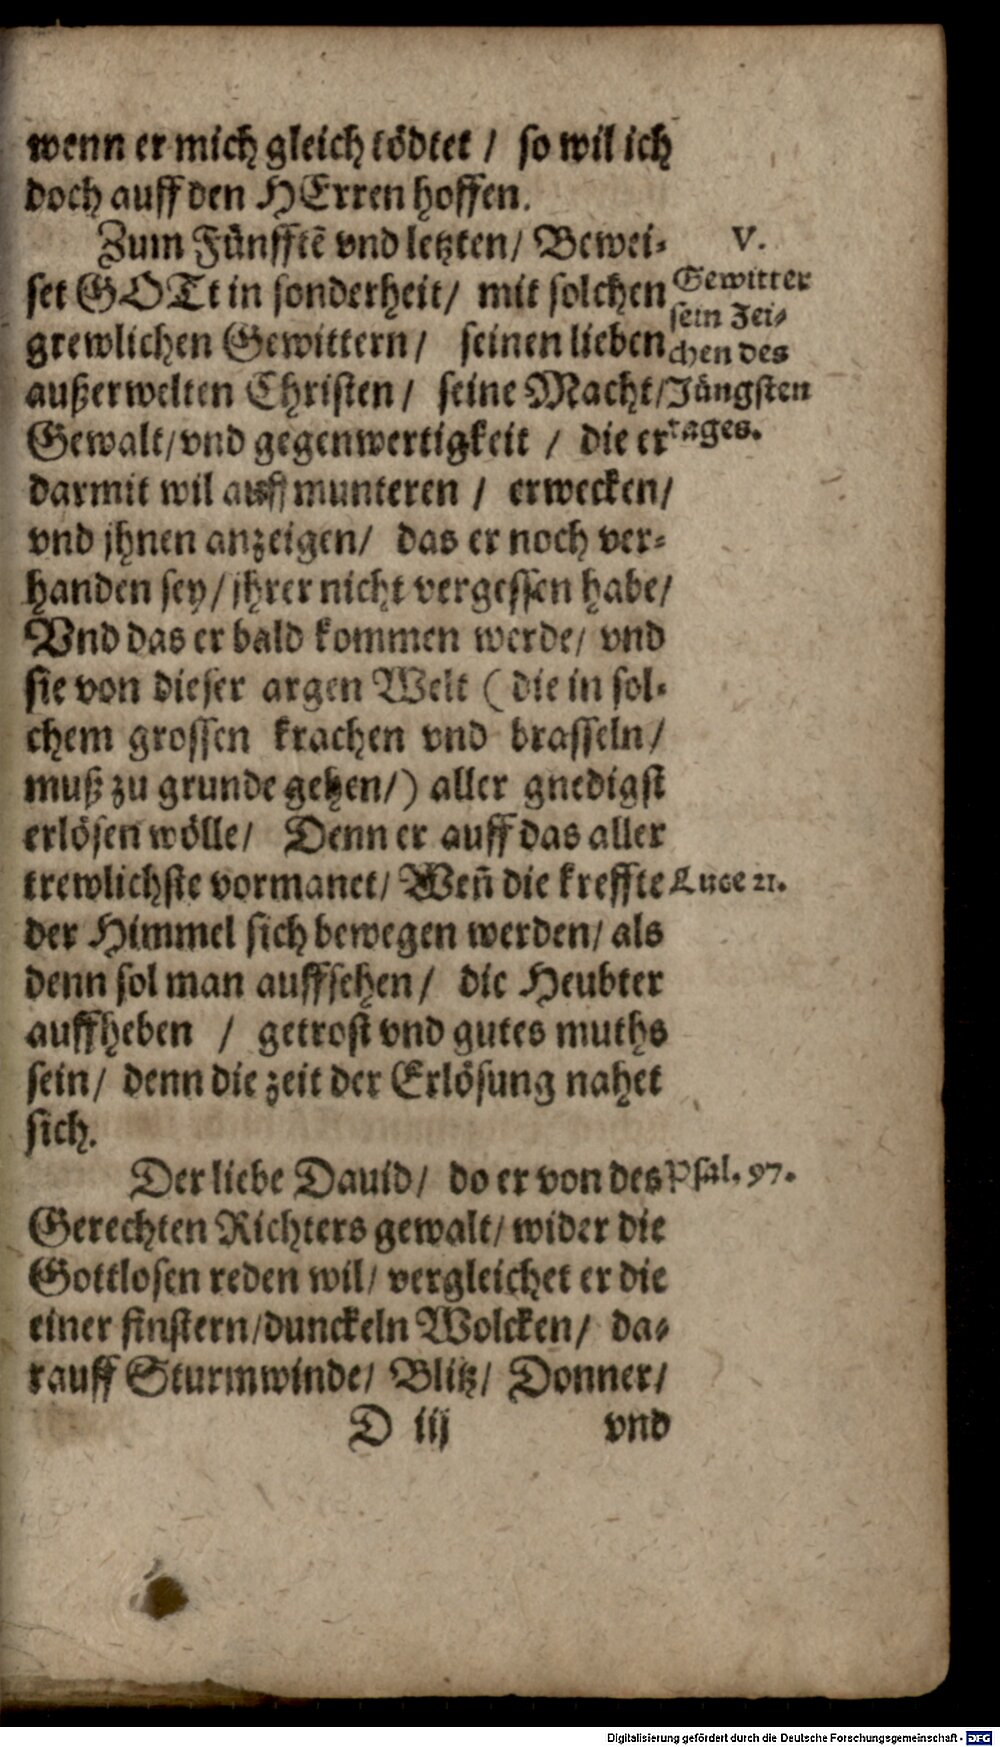 wenn er mich gleich tödtet / so wil ich
doch auff den HErren hoffen.
Zum Fünfftē vnd letzten / Bewei⸗
set GOTt in sonderheit / mit solchen
grewlichen Gewittern / seinen lieben
außerwelten Christen / seine Macht /
Gewalt / vnd gegenwertigkeit / die er
darmit wil auff munteren / erwecken /
vnd jhnen anzeigen / das er noch ver⸗
handen sey / jhrer nicht vergessen habe /
Vnd das er bald kommen werde / vnd
sie von dieser argen Welt ( die in sol⸗
chem grossen krachen vnd brasseln /
muß zu grunde gehen / ) aller gnedigst
erlösen wölle / Denn er auff das aller
trewlichste vormanet / Weñ die kreffte
der Himmel sich bewegen werden / als
denn sol man auffsehen / die Heubter
auffheben / getrost vnd gutes muths
sein / denn die zeit der Erlösung nahet
sich.
Der liebe Dauid / do er von des
Gerechten Richters gewalt / wider die
Gottlosen reden wil / vergleichet er die
einer finstern / dunckeln Wolcken / da⸗
rauff Sturmwinde / Blitz / Donner /
D iij vnd
V.
Gewitter
sein Zei⸗
chen des
Jüngsten
tages.
Luce 21.
Psal. 97.
Digitalisierung gefördert durch die Deutsche Forschungsgemeinschaft - DFG